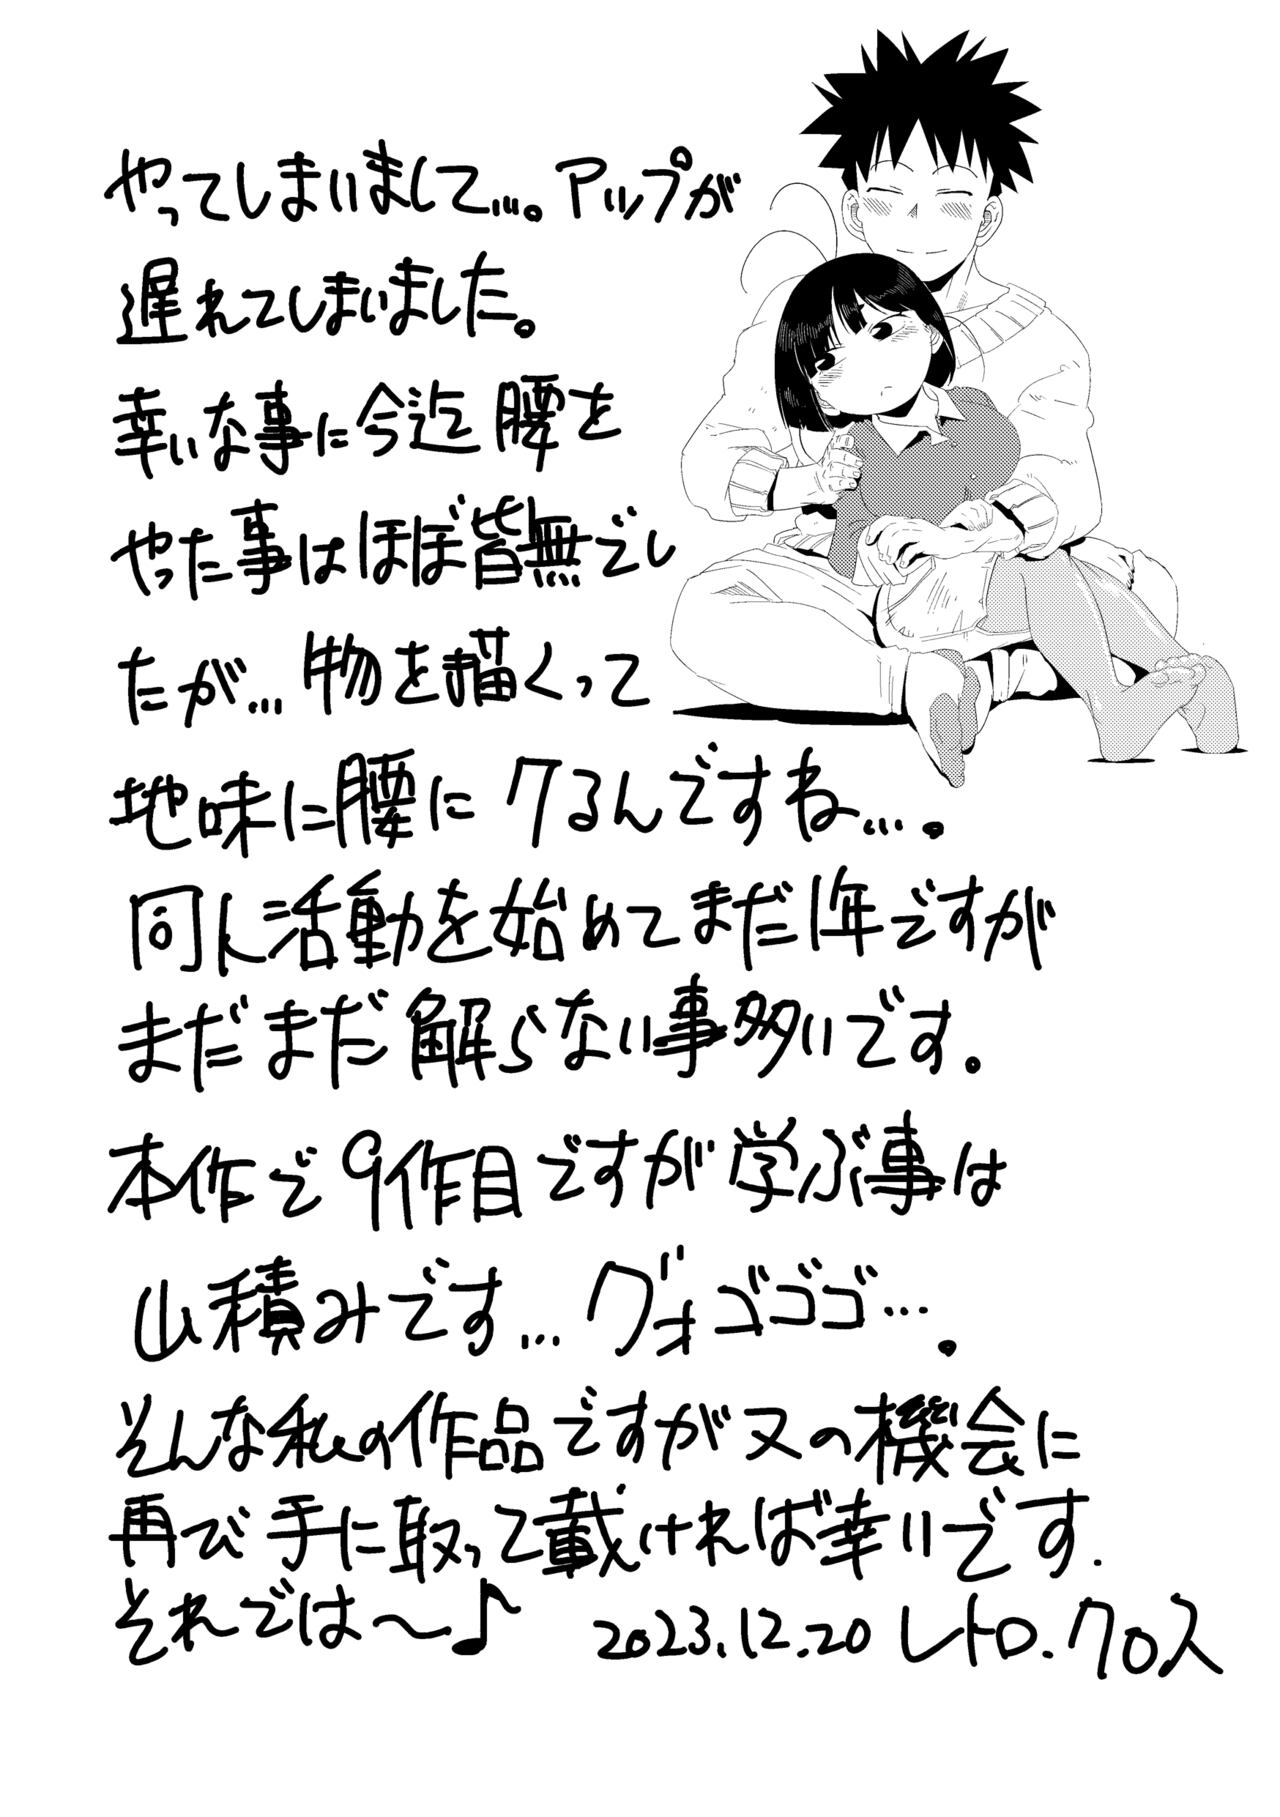 やってしまいまして…。アップが
遅れてしまいました。
幸いな事に今迄腰を
やった事はほぼ皆無でし
たが…物を描くって
地味に腰にクるんですね…。
同人活動を始めてまだ1年ですが
まだまだ解らない事多いです。
本作で9作目ですが学ぶ事は
山積みです…グォゴゴゴ…。
そんな私の作品ですが又の機会に
再び手に取って載ければ幸いです.
それでは～♪ 2023.12.20 レトロ.クロス